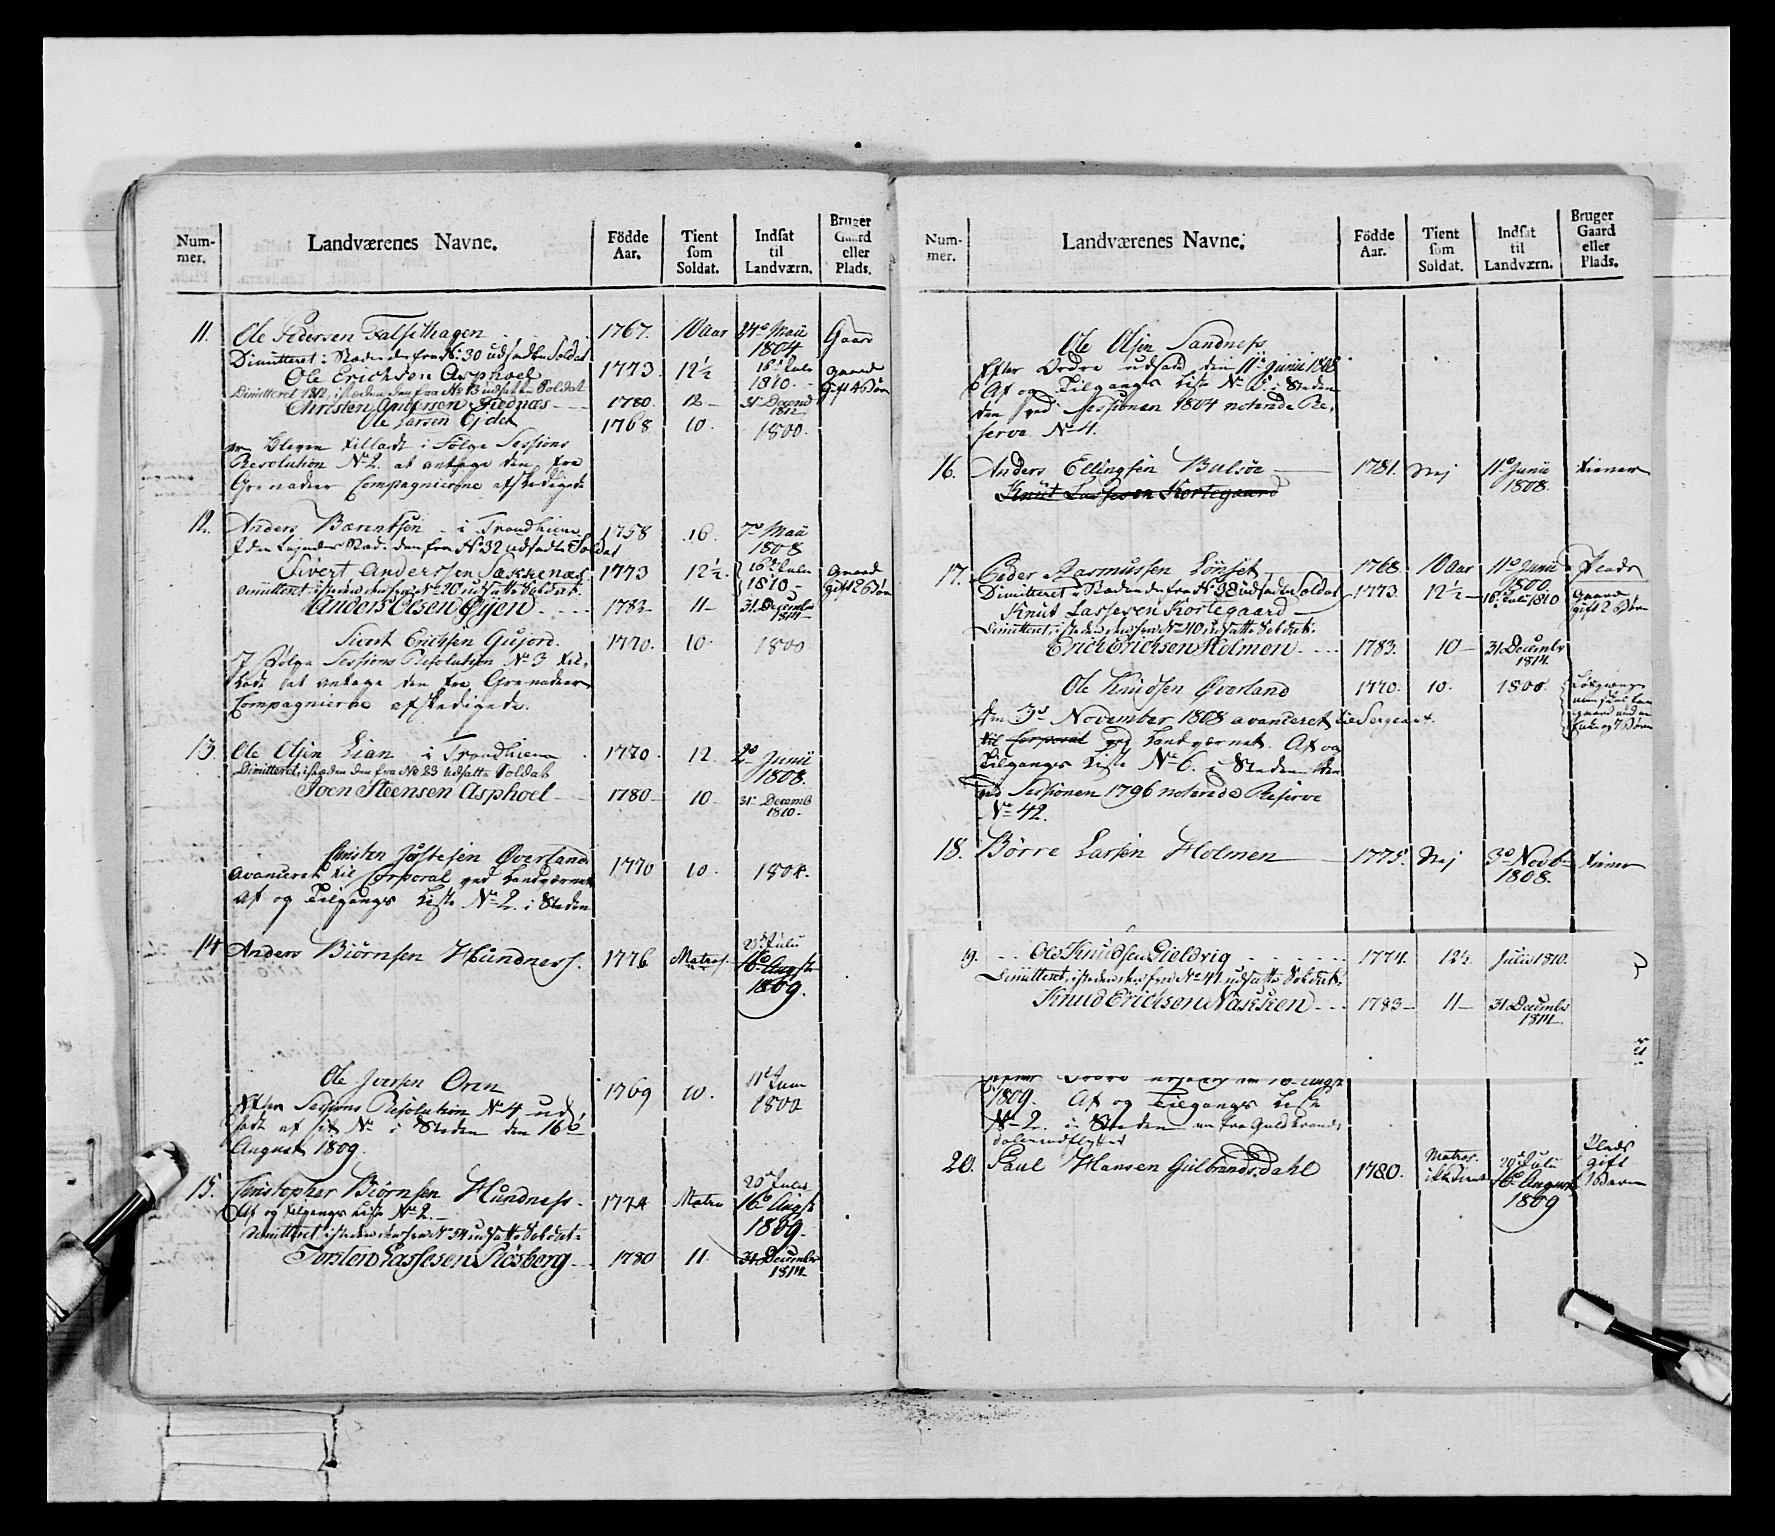 Num-
mer.
Landværenes Navne.
Födde
Aar.
Tient
som
Soldat.
Indsat
til
Landværn.
Bruger
Gaard
eller
Plads.
11. Ole Pedersen Falsethagen 1767. 10 Aar 24de Maii 1804 Gaard
Dimitteret i Staden den fra No: 30 udsadte Soldat
Ole Erichsen Asphoel 1773. 12½ 16de Julii 1810. Gaard gift 4 Børn
Dimitteret 1812, isteden den fra No 13 udsatte Soldat
Christen Andersen Fiednæs 1780. 12 31 Decemb 1812
Ole Larsen Eidet 1768 10. 1800.
er bleven tilladt i Følge Sessions
Resolution No 2. at antage den fra
Grenadeer Compagnierne afskedigede
12. Anders Bærentsen i Trondhiem 1758 16. 7de Maii 1808
den fra No 32 udsadte Soldat
Sivert Anderssen Sækkenæs 1773 12½. 16de Julii 1810 Gaard gift 2 Børn
Dimitteret isteden den fra No 20 udsatte Soldat.
Anders Olsen Øyen 1782 11 31 Decembr 1814
Sivert Erichsen Gujord. 1770. 10. 1800
I Følge Sessions Resolution No 3 til-
ladt at antage den fra Grenadeer
Compagnierne afskedigede.
13. Ole Olsen Lian i Trondhiem 1770. 12. 2de Junii 1808.
Dimitteret, isteden den fra No 23 udsatte Soldat
Joen Steensen Asphoel 1780 10. 31 Decemb 1810.
Christen Jostesen Øverland 1770 10. 1804.
avanceret til Corporal ved Landværnet
Af og Tilgangs Liste No 2. i Steden
14 Anders Biørnsen Hundness. 1776. Matros. 20de Julii 16de Augst 1809.
Ole Iversen Oren 1769 10. 11te Junii 1800
Efter Sessions Resolution No 4 ud-
sadt af sit No i Steden den 16de
August 1809.
15. Christopher Biørnsen Hundness. 1774 Matro 20de Julii 16de Augst 1809.
Af og Tilgangs Liste No 2.
Dimitteret isteden den fra No 34 udsatte Soldat
Torsten Lassesen Røsberg 1780 11. 31 Decembr 1814
Num-
mer.
Landværenes Navne.
Födde
Aar.
Tient
som
Soldat.
Indsat
til
Landværn.
Bruger
Gaard
eller
Plads.
Ole Olsen Sandness
Efter Ordre udsadt den 11te Junii 1808
Af og Tilgangs Liste No 1. i Steden
den ved Sessionen 1804 noterede Re-
serve No 4.
16. Anders Ellingsen Bulsøe 1781. Nej 11te Junii 1808. tiener
Knut Lassesen Kortegaard
17. Peder Rasmussen Lønset 1768 10 Aar 11te Junii 1800. Plads
Dimitteret i Staden den fra No 38 udsadte Soldat
Knut Lassesen Kortegaard 1773. 12½ 16de Julii 1810 Gaard gift 2 Børn
Dimitteret, isteden den fra No 40 udsatte Soldat.
Erich Erichsen Holmen 1783. 10 31 Decembr 1814.
Ole Knudsen Øverland 1770. 10. 1800.
den 3de November 1808 avanceret til Sergeant.
til Corporal ved Landværnet. Af og
Tilgangs Liste No 6. i Steden den
ved Sessionen 1796 noterede Reserve
No 42.
18. Børre Larsen Holmen 1775. Nej 3de Novb 1808. tiener
19. Ole Knudsen Gieldvig 1774. 12½. Julii 1810.
Dimitteret, isteden den fra No 41 udsatte Soldat.
Knud Erichsen Nakken 1783 11 31 Decembr 1814
Efter Ordre den 16de Augst
1809. Af og Tilgangs Liste
No 2. i Steden
20. Paul Hansen Gulbrandsdahl 1780. Matros. ikke tient 20de Julii 16de August 1809 Plads gift 1 Barn